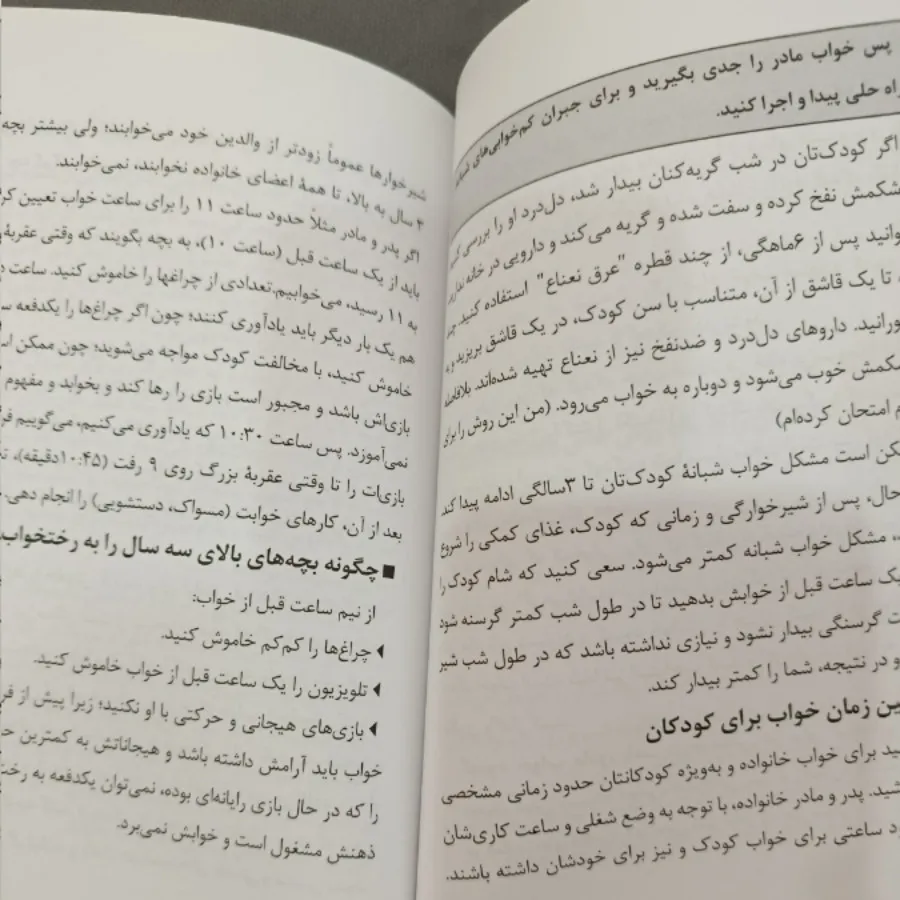 پس خواب مادر را جدی بگیرید و برای جبران کم‌خوابی‌های
راه حلی پیدا و اجرا کنید.
اگر کودک‌تان در شب گریه‌کنان بیدار شد، دل‌درد او را بررسی
شکمش نفخ کرده و سفت شده و گریه می‌کند و دارویی در خانه
پس از ۶ماهگی، از چند قطره "عرق نعناع" استفاده کنید.
تا یک قاشق از آن، متناسب با سن کودک، در یک قاشق بریزید و
داروهای دل‌درد و ضدنفخ نیز از نعناع تهیه شده‌اند. بلافاصله
خوب می‌شود و دوباره به خواب می‌رود. (من این روش را برای
امتحان کرده‌ام)
است مشکل خواب شبانهٔ کودک‌تان تا ۳سالگی ادامه پیدا کند
حال، پس از شیرخوارگی و زمانی که کودک، غذای کمکی را شروع
مشکل خواب شبانه کمتر می‌شود. سعی کنید که شام کودک را
یک ساعت قبل از خوابش بدهید تا در طول شب کمتر گرسنه شود
گرسنگی بیدار نشود و نیازی نداشته باشد که در طول شب شیر
و در نتیجه، شما را کمتر بیدار کند.
زمان خواب برای کودکان
برای خواب خانواده و به‌ویژه کودکانتان حدود زمانی مشخصی
پدر و مادر خانواده، با توجه به وضع شغلی و ساعت کاری‌شان
ساعتی برای خواب کودک و نیز برای خودشان داشته باشند.
شیرخوارها عموماً زودتر از والدین خود می‌خوابند؛ ولی بیشتر بچه
۳ سال به بالا، تا همهٔ اعضای خانواده نخوابند، نمی‌خوابند.
اگر پدر و مادر مثلاً حدود ساعت ۱۱ را برای ساعت خواب تعیین
باید از یک ساعت قبل (ساعت ۱۰)، به بچه بگویند که وقتی عقربهٔ
به ۱۱ رسید، می‌خوابیم.تعدادی از چراغها را خاموش کنید. ساعت
هم یک بار دیگر باید یادآوری کنند؛ چون اگر چراغ‌ها را یکدفعه
خاموش کنید، با مخالفت کودک مواجه می‌شوید؛ چون ممکن
بازی‌اش باشد و مجبور است بازی را رها کند و بخوابد و مفهوم
نمی‌آموزد. پس ساعت ۱۰:۳۰ که یادآوری می‌کنیم، می‌گوییم
بازی‌ات را تا وقتی عقربهٔ بزرگ روی ۹ رفت (۱۰:۴۵دقیقه)،
بعد از آن، کارهای خوابت (مسواک، دستشویی) را انجام دهی.
■ چگونه بچه‌های بالای سه سال را به رختخواب
از نیم ساعت قبل از خواب:
◖ چراغ‌ها را کم‌کم خاموش کنید.
◖ تلویزیون را یک ساعت قبل از خواب خاموش کنید.
◖ بازی‌های هیجانی و حرکتی با او نکنید؛ زیرا پیش از
خواب باید آرامش داشته باشد و هیجاناتش به کمترین
را که در حال بازی رایانه‌ای بوده، نمی‌توان یکدفعه به
ذهنش مشغول است و خوابش نمی‌برد.